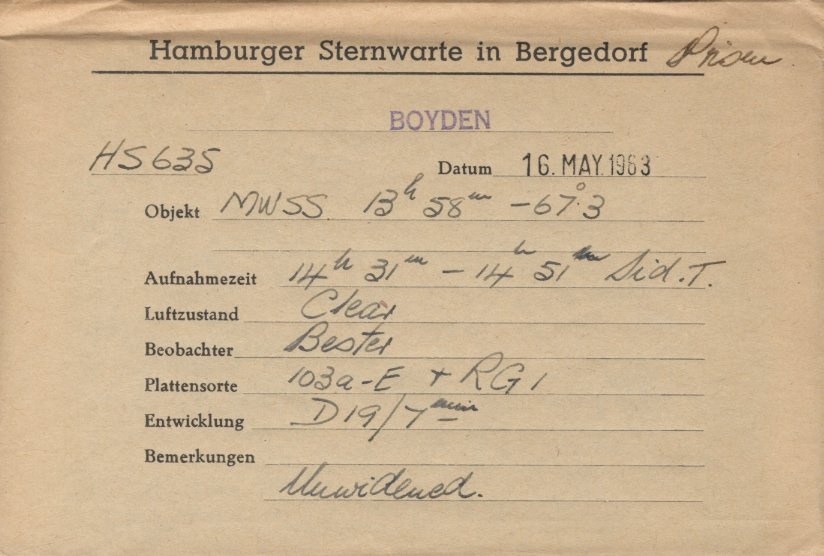 Hamburger Sternwarte in Bergedorf Prism
BOYDEN
HS 635
Datum 16. MAY. 1963
Objekt MWSS 13h 58m -67°.3
Aufnahmezeit 14h 31m - 14h 51m Sid. T.
Luftzustand Clear
Beobachter Bester
Plattensorte 103a-E + RG1
Entwicklung D19/7min
Bemerkungen
Unwidened.